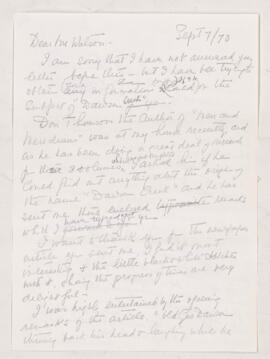 Sept 7/73
Dear Mr Watson -
I am sorry that I have not answered your
letter before this - but I have been trying to
obtain information for the
support of "Dawson
Don Thomson the author of "Men and
Meridians" was at my house recently and
as he has been doing a great deal of research
for his 3 volumes, I asked him if he
could find out anything about the origin of
the name "Dawson Creek" and he has
sent me the enclosed
which I
I want to thank you for the newspaper
article you sent me. I find it most
interesting & the little sketches
with it, showing the progress of time are very
delightful -
I was highly entertained by the opening
remarks of the article. "Old Dawson
throwing back his head & laughing while he